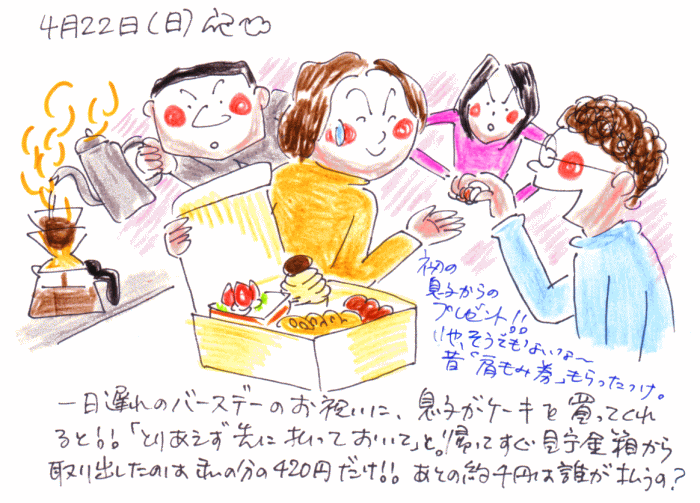 4月22日(日)
初の
息子からの
プレゼント!!
いや、そうでもないな〜
昔「肩もみ券」もらったっけ。
一日遅れのバースデーのお祝いに、息子がケーキを買ってくれ
ると!!「とりあえず先に払っておいて」と。帰ってすぐ貯金箱から
取り出したのは私の分の420円だけ!! あとの約千円は誰が払うの?